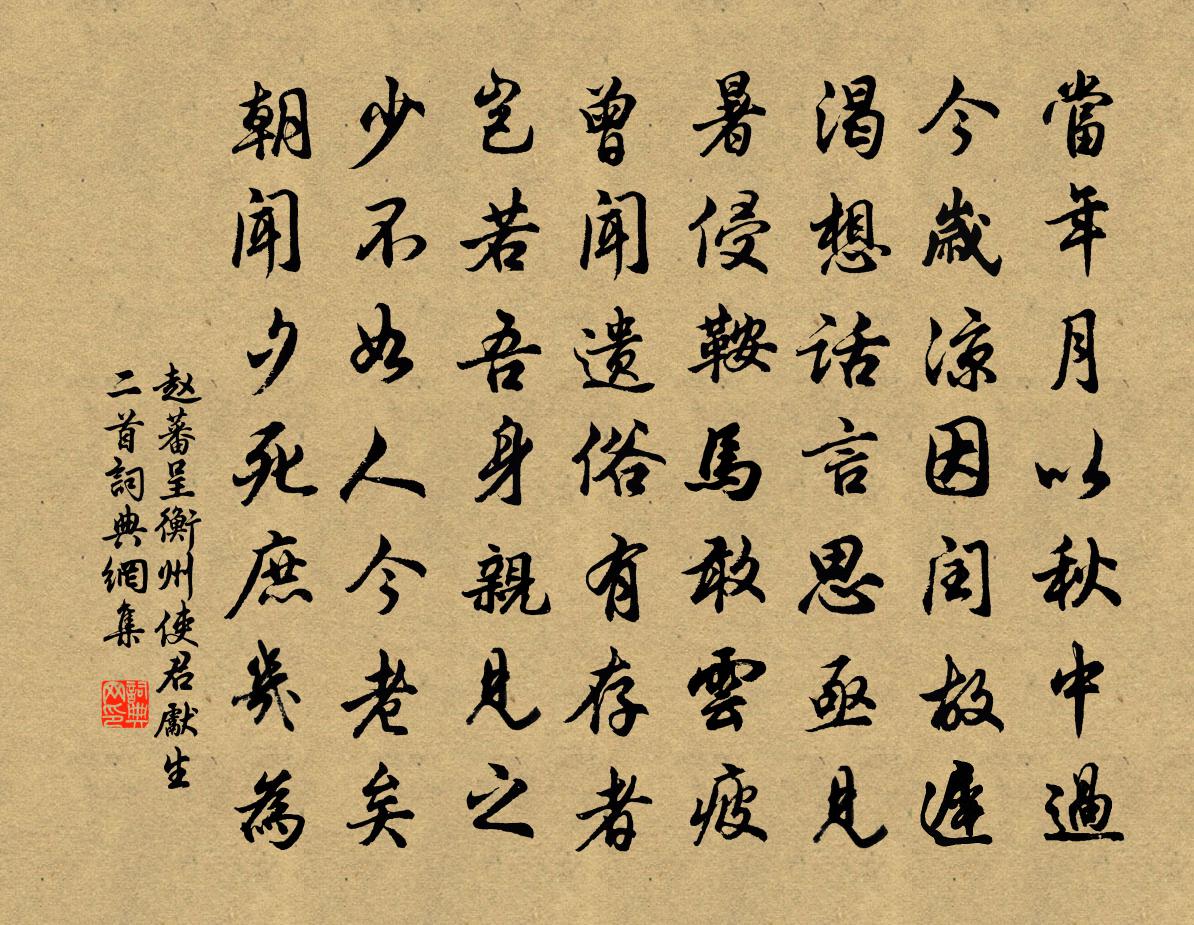 當年月以秋中過
今歲涼因閏故遲
渴想話言思亟見
暑侵鞍馬敢雲疲
曾聞遺俗有存者
豈若吾身親見之
少不如人今老矣
朝聞夕死庶幾為
赵蕃呈衡州使君獻生
二首詞典網集
詞典网印